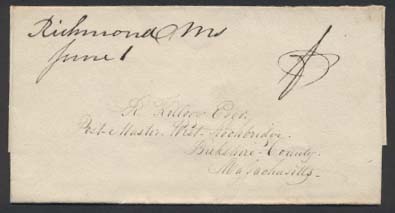 Richmond Ms
June 1
R Kilbon Esqr.
Post-Master West Stockbridge.
Berkshire County
Massachusetts.